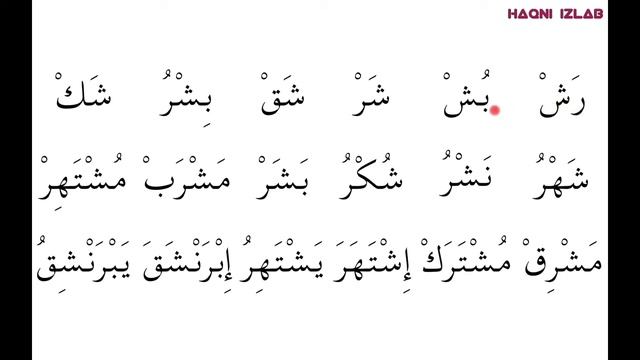 HAQNI IZLAB
رَشْ بُشْ شَرْ شَقْ بِشْرُ شَكْ
شَهْرُ نَشْرُ شُكْرُ بَشَرْ مَشْرَبْ مُشْتَهِرْ
مَشْرِقْ مُشْتَرَكْ إِشْتَهَرَ يَشْتَهِرُ إِبْرَنْشَقَ يَبْرَنْشِقُ